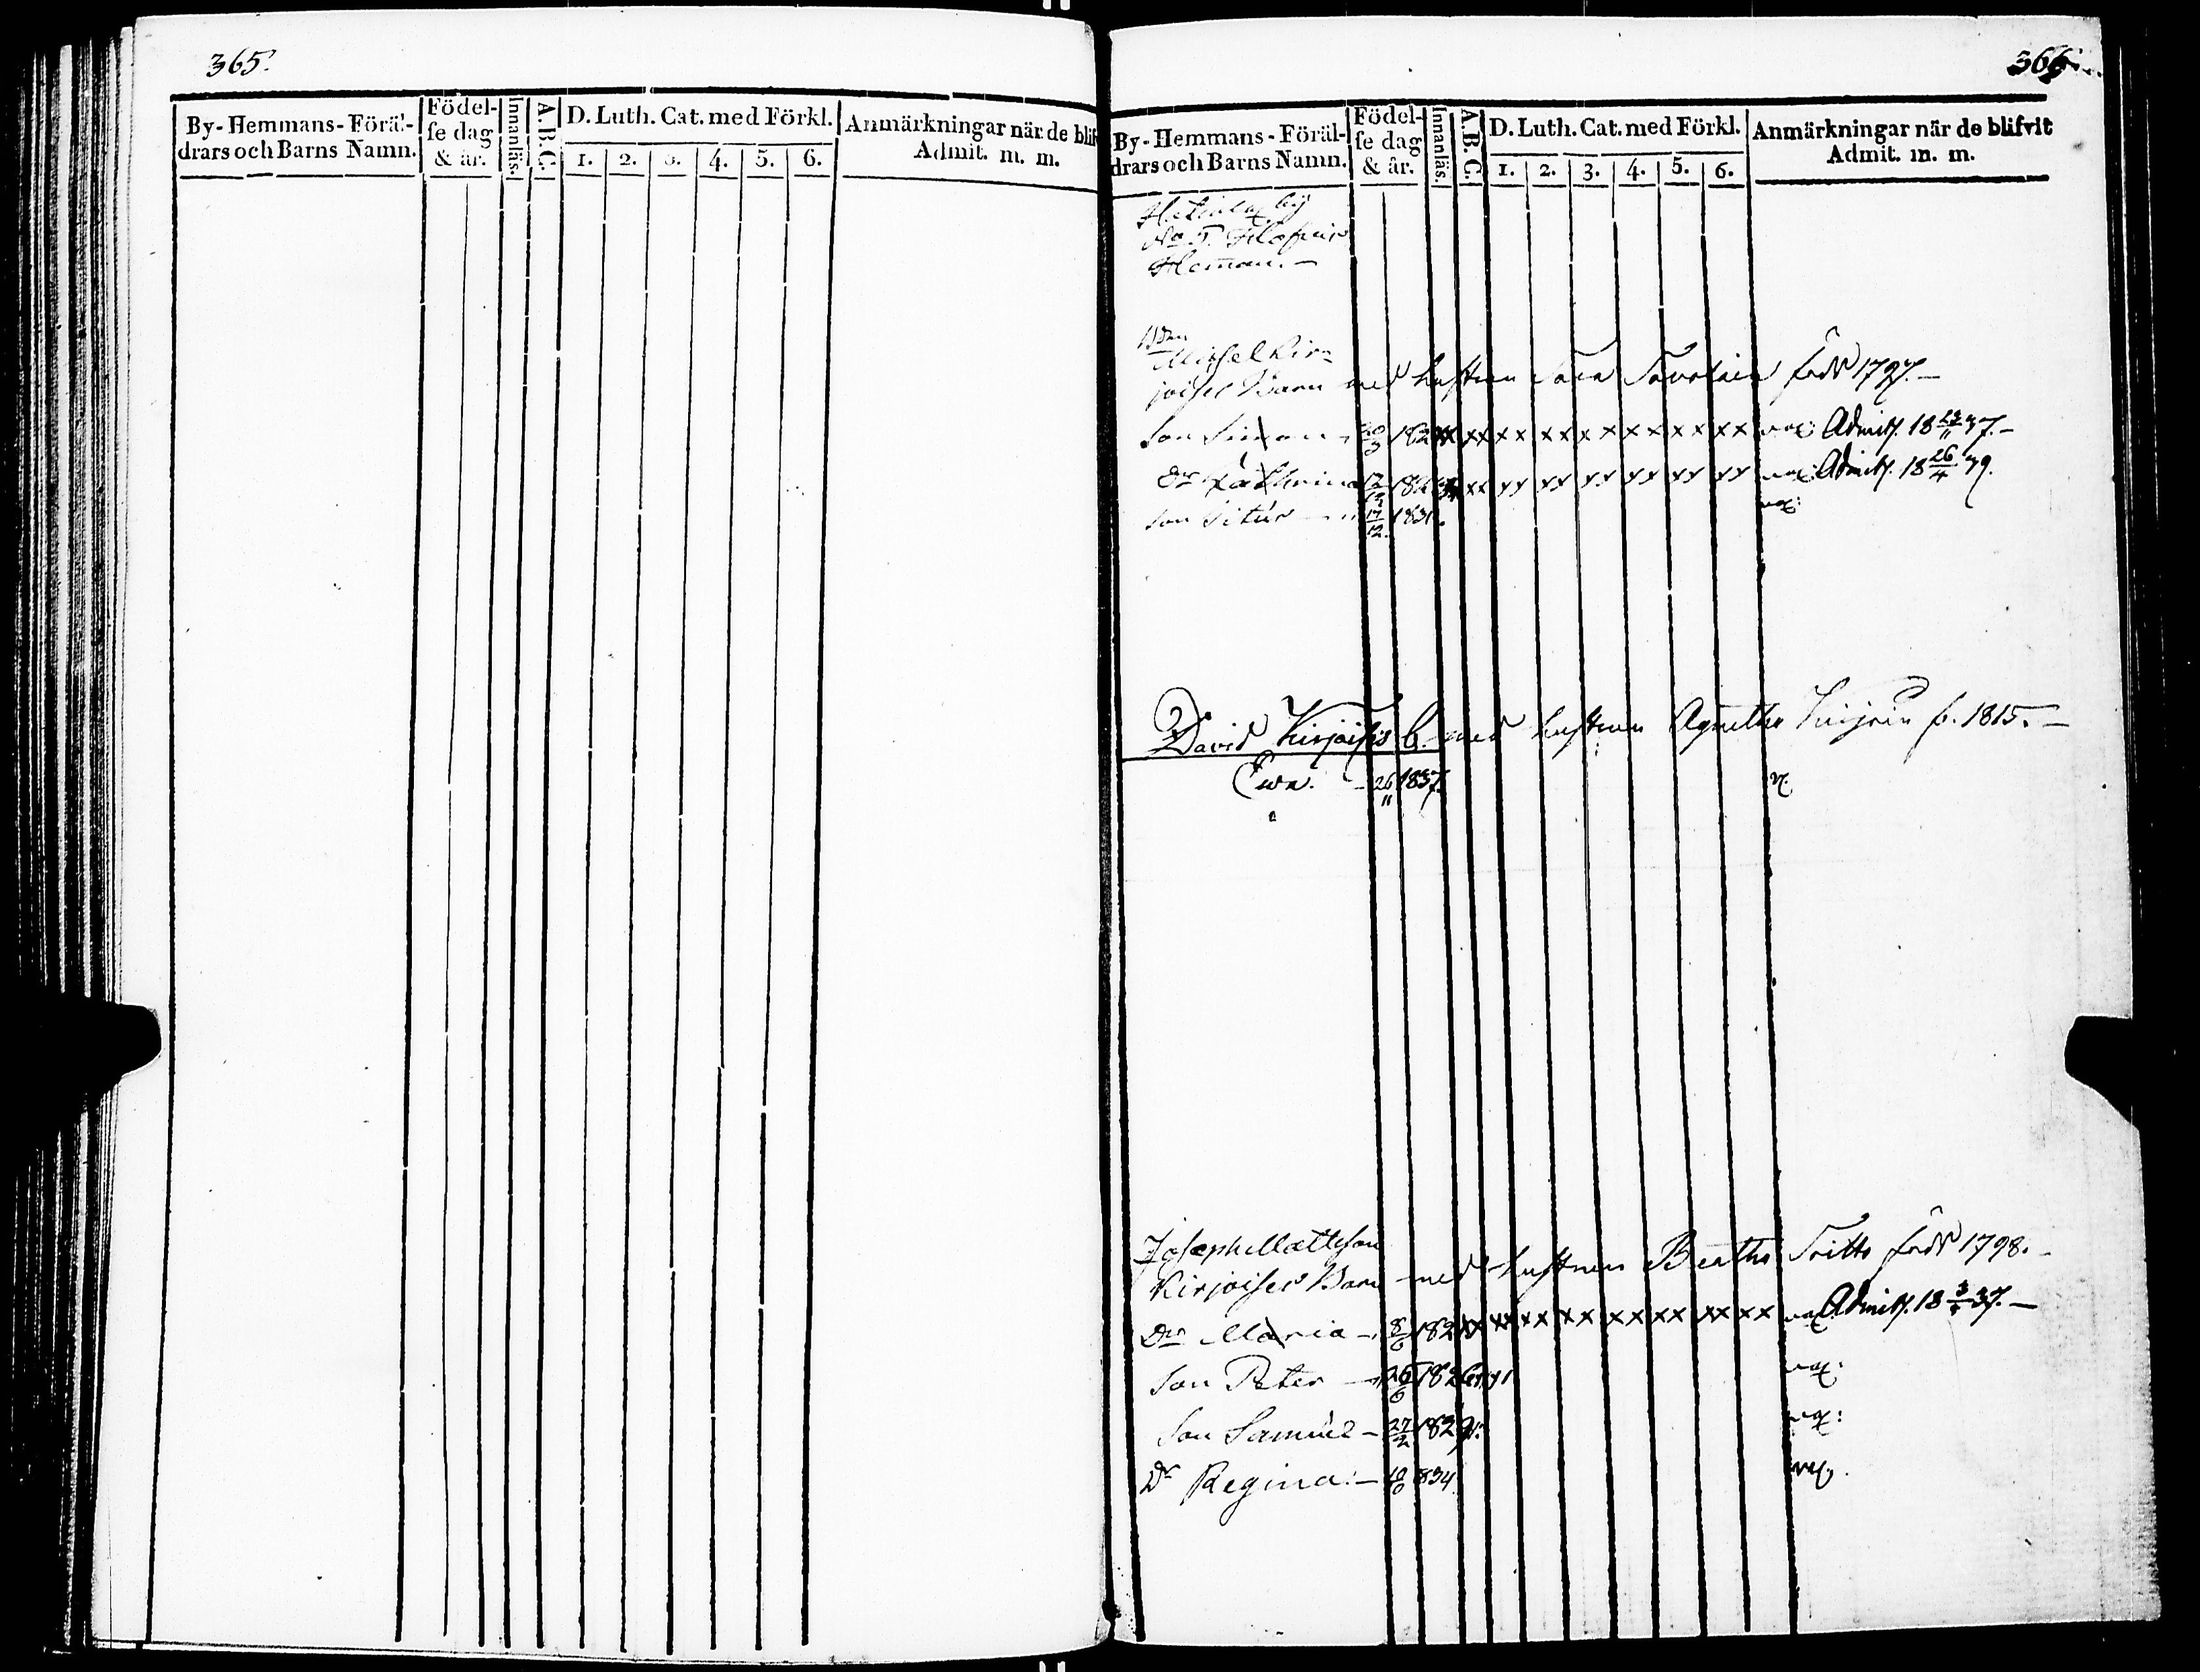 365.
By-Hemmans-Föräl-
drars och Barns Namn.
Födel-
se dag
& år.
Innanläs.
A.B.C.
D. Luth. Cat. med Förkl.
1. 2. 3. 4. 5. 6.
Anmärkningar när de blif
Admit. m. m.
366.
By-Hemmans-Föräl-
drars och Barns Namn.
Födel-
se dag
& år.
Innanläs.
A.B.C.
D. Luth. Cat. med Förkl.
1. 2. 3. 4. 5. 6.
Anmärkningar när de blifvit
Admit. m. m.
by
No 5.
Heman.
Michel Kir-
joises Barn med hustrun Sara Savolain född 1797.
Son Simon 182 xx xx xx xx x x x x x x xx vac: Admitt. 18 37.
Dr Kathrina 182 xx yy yy yy yy yy yy vac: Admitt. 18 26/4 39.
Son Petér 17/12 1831. vac:
David Kirjoises b. med hustrun Agnetha f. 1815.
Ewa. 26/11 1837. v.
Joseph Mattsson
Kirjoises Barn med hustrun Beatha född 1798.
Dr Maria 8/6 182 xx xx xx xx xx xx xx xx vac: Admitt. 18 37.
Son Peter 26/6 1826 vac:
Son Samuel 27/2 1829 vac:
Dr Regina. 834 vac.